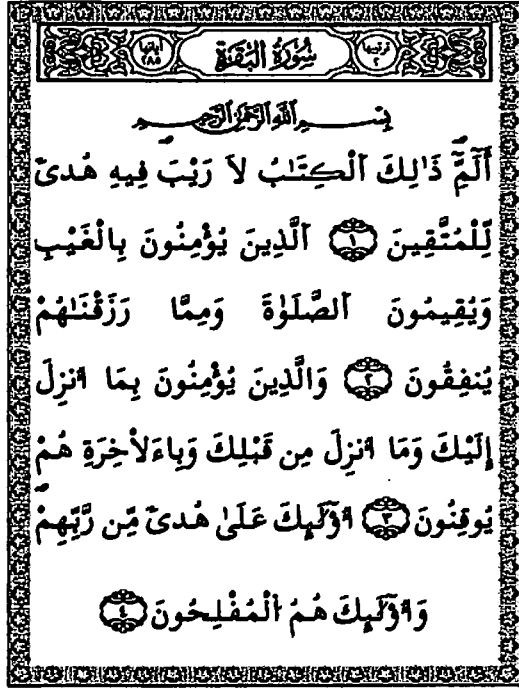 ترتيبها ٢ سُورَةُ الْبَقَرَةِ آياتها ٢٨٥
بِسْمِ اللَّهِ الرَّحْمَٰنِ الرَّحِيمِ
أَلَٓمِّٓ ذَٰلِكَ اَ۬لْكِتَٰبُ لَا رَيْبَ فِيهِ هُدىٗ
لِّلْمُتَّقِينَ ١ اَ۬لذِينَ يُؤْمِنُونَ بِالْغَيْبِ
وَيُقِيمُونَ اَ۬لصَّلَوٰةَ وَمِمَّا رَزَقْنَٰهُمْ
يُنفِقُونَ ٢ وَالَّذِينَ يُؤْمِنُونَ بِمَا أُنزِلَ
إِلَيْكَ وَمَا أُنزِلَ مِن قَبْلِكَ وَبِاءَلَاخِرَةِ هُمْ
يُوقِنُونَ ٣ أُوْلَٰٓئِكَ عَلَىٰ هُدىٗ مِّن رَّبِّهِمْ
وَأُوْلَٰٓئِكَ هُمُ اُ۬لْمُفْلِحُونَ ٤